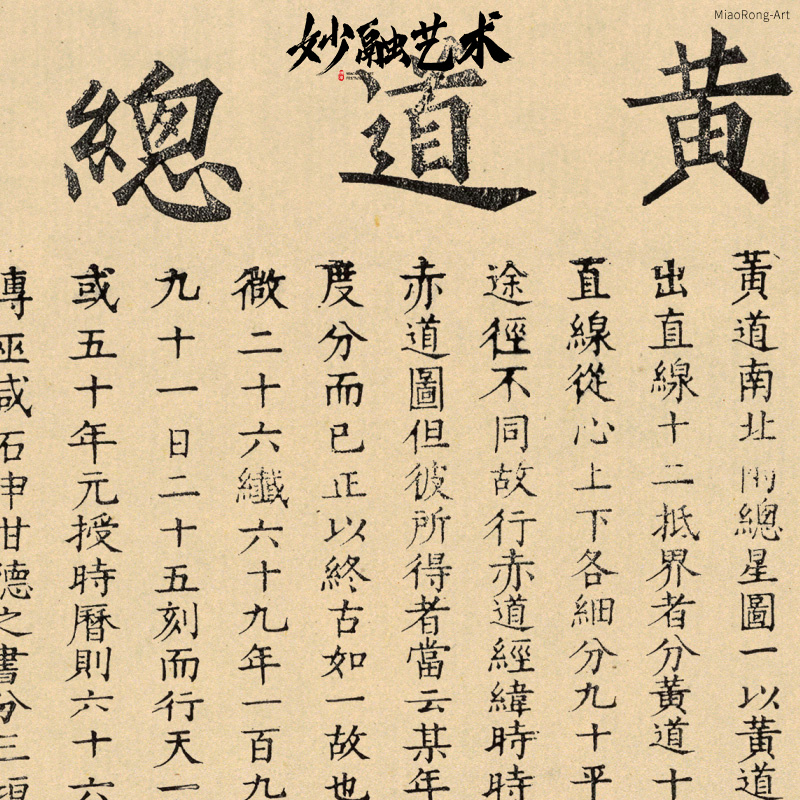 妙融艺术
MiaoRong-Art
黃道總
黃道南北兩總星圖一以黃道
出直線十二抵界者分黃道十
直線從心上下各細分九十平
途徑不同故行赤道經緯時時
赤道圖但彼所得者當云某年
度分而已正以終古如一故也
微二十六纖六十九年一百九
九十一日二十五刻而行天一
或五十年元授時曆則六十六
傳巫咸石申甘德之書分三垣